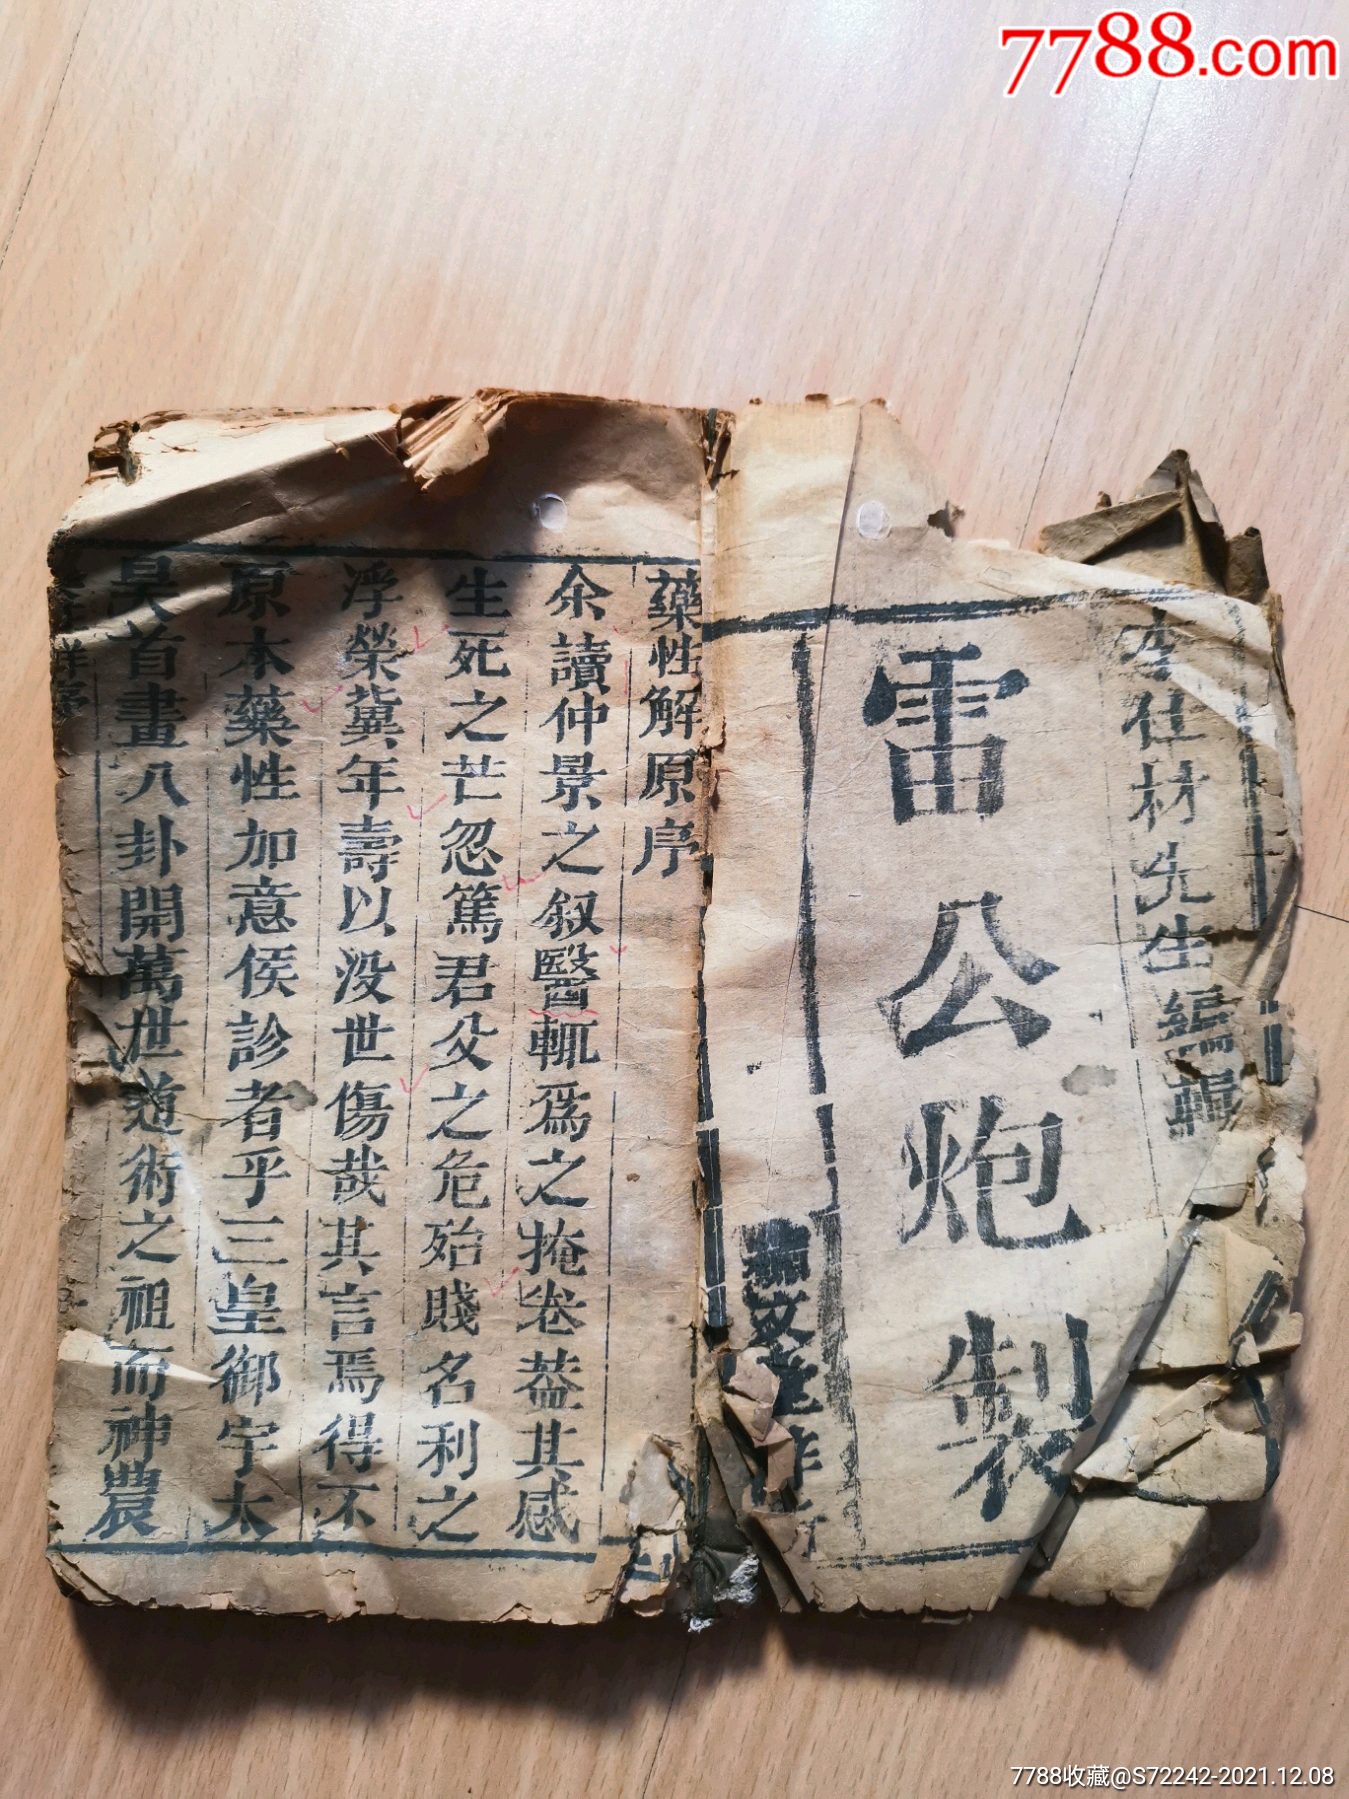 7788.com
李仕材先生編輯
雷公炮製
文堂梓行
藥性解原序
余讀仲景之叙醫輒爲之掩卷葢其感
生死之芒忽篤君父之危殆賤名利之
浮榮冀年壽以没世傷哉其言焉得不
原本藥性加意侯診者乎三皇御宇太
昊首畫八卦開萬世道術之祖而神農
7788收藏@S72242-2021.12.08